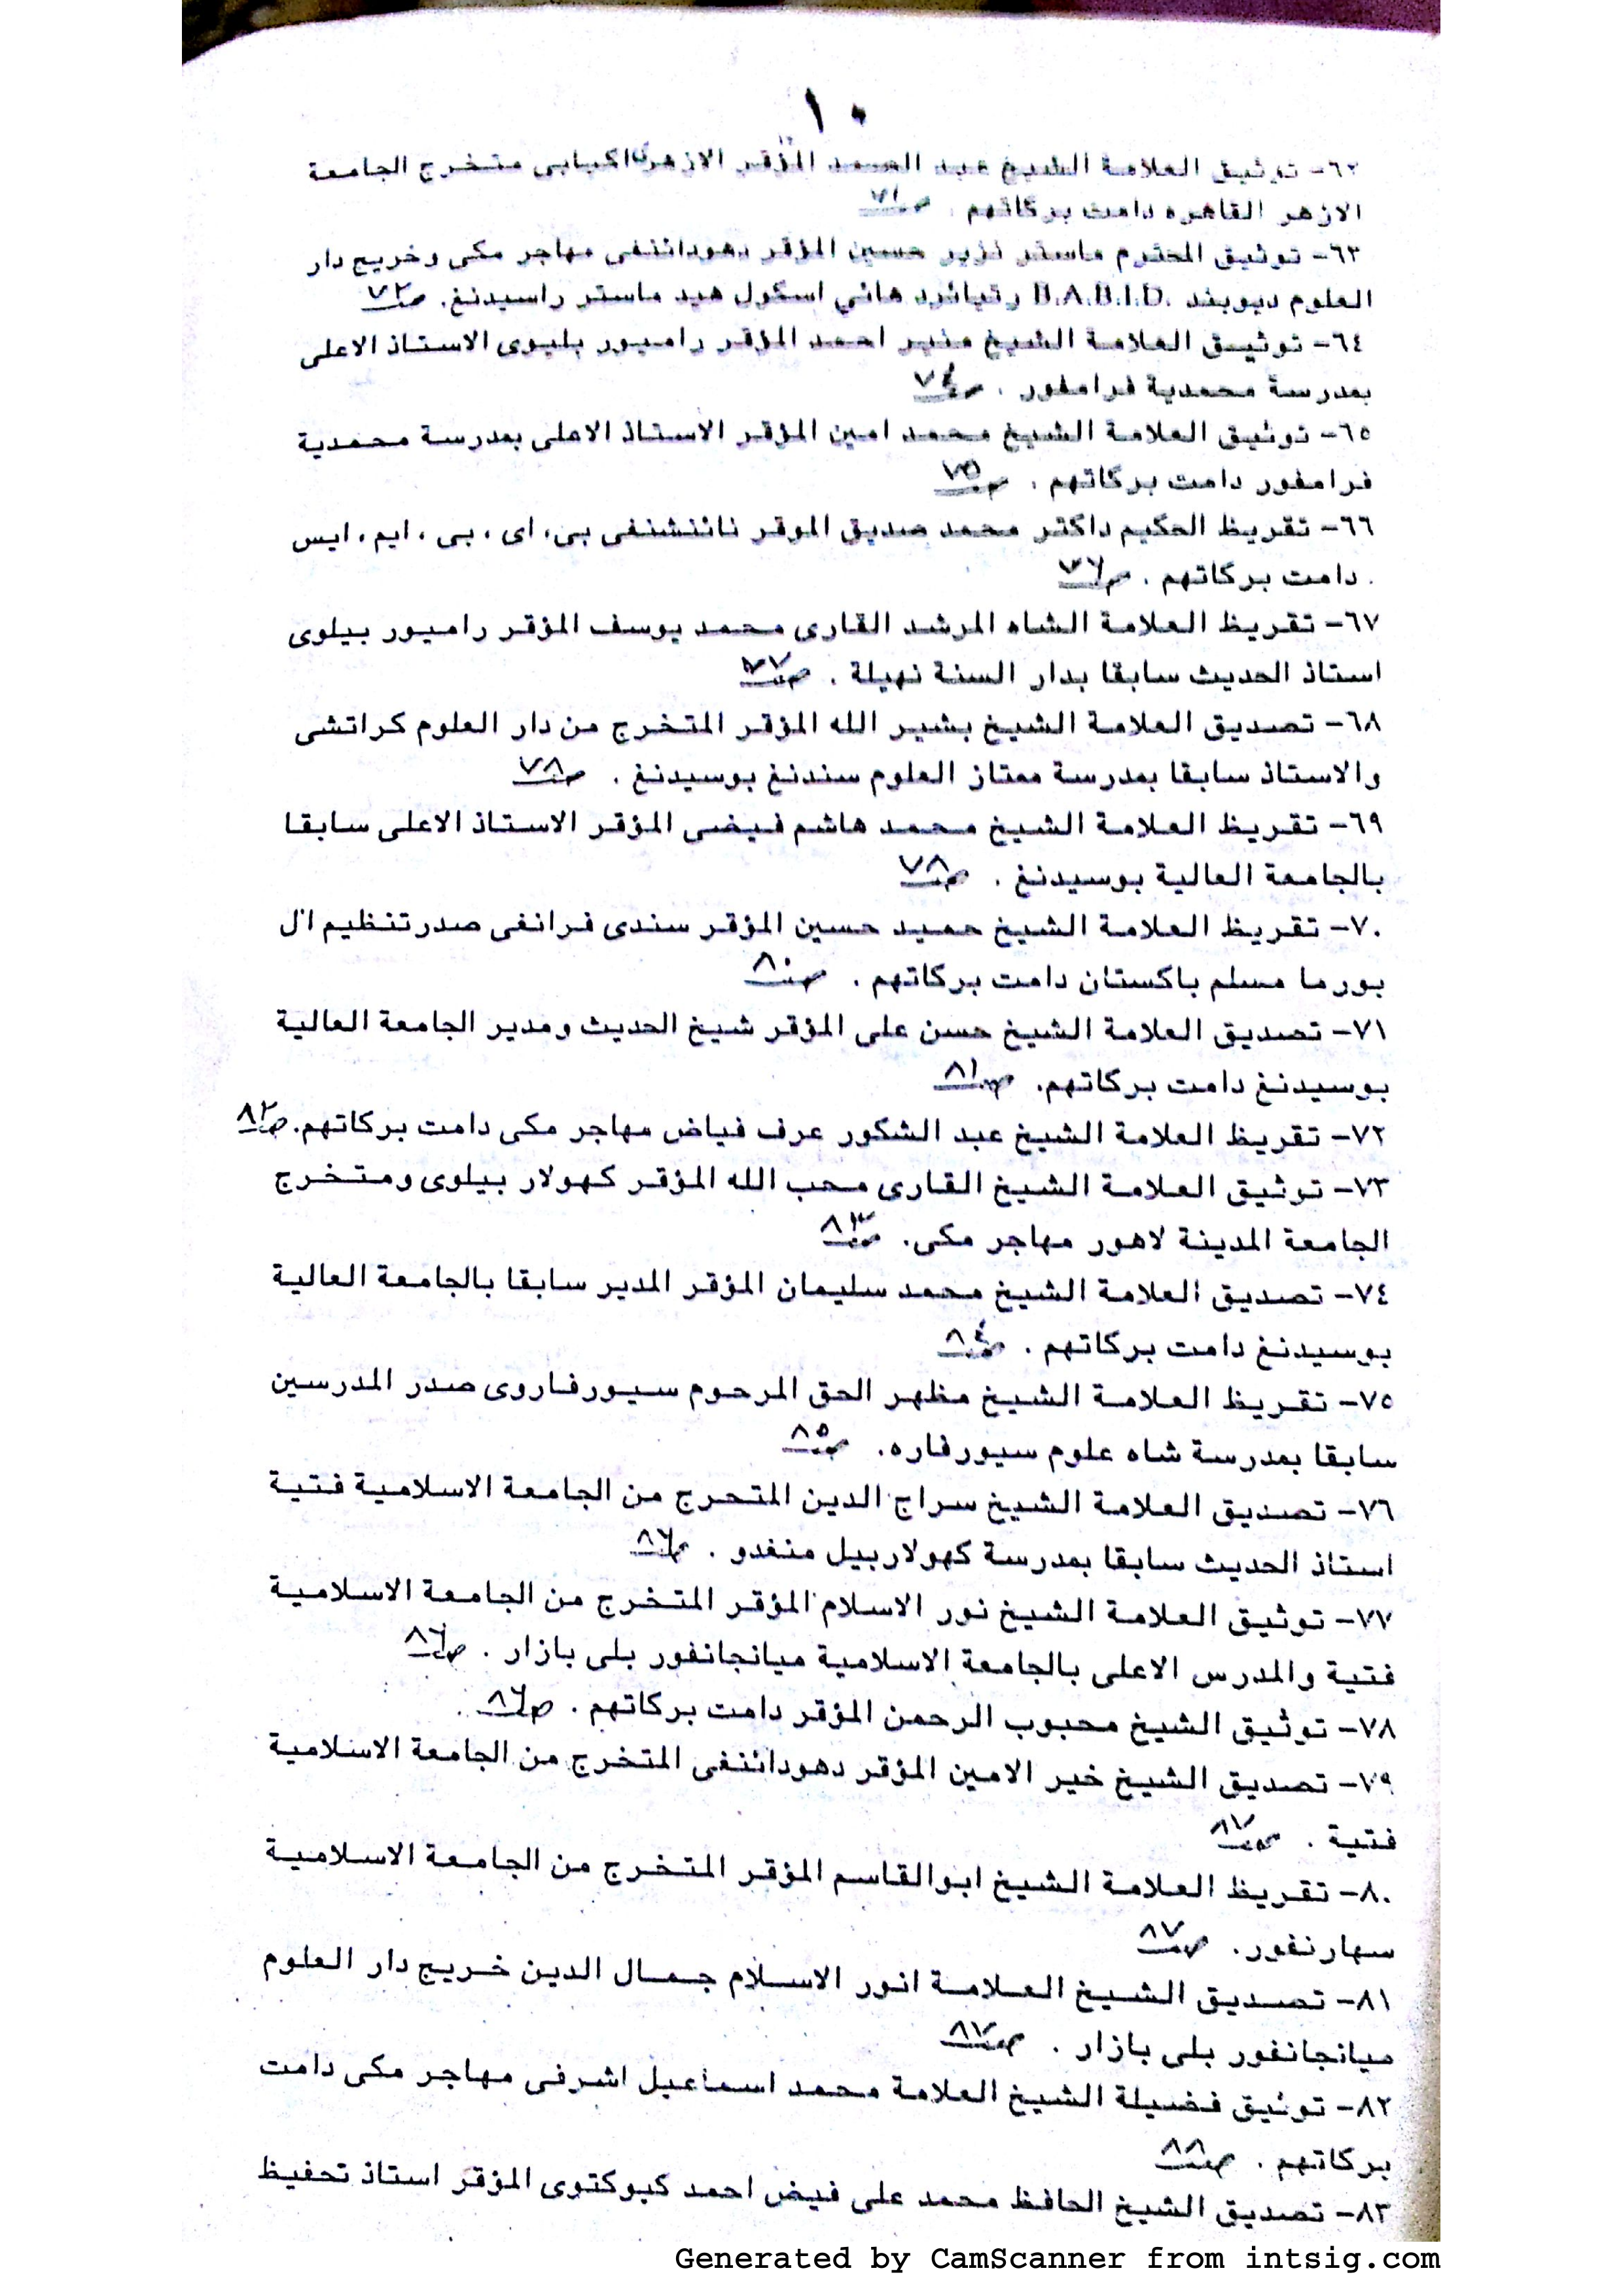 ١٠
٦٢- توثيق العلامة الشيخ عبد الصمد المؤقر الازهرى اكيابى متخرج الجامعة
الازهر القاهره دامت بركاتهم . صـ٧١
٦٣- توثيق المحترم ماستر نزير حسين المؤقر دهودائنفى مهاجر مكى وخريج دار
العلوم ديوبند B.A.B.I.D. رتيائرد هائي اسكول هيد ماستر راسيدنغ. صـ٧٢
٦٤- توثيق العلامة الشيخ منير احمد المؤقر رامپور بليوى الاستاذ الاعلى
بمدرسة محمدية فرامفور . صـ٧٤
٦٥- توثيق العلامة الشيخ محمد امين المؤقر الاستاذ الاعلى بمدرسة محمدية
فرامفور دامت بركاتهم . صـ٧٥
٦٦- تقريظ الحكيم داكتر محمد صديق الموقر نائنشنفى بى، اى ، بى ، ايم ، ايس
. دامت بركاتهم . صـ٧٦
٦٧- تقريظ العلامة الشاه المرشد القارى محمد يوسف المؤقر رامپور بيلوى
استاذ الحديث سابقا بدار السنة نهيلة . صـ٧٧
٦٨- تصديق العلامة الشيخ بشير الله المؤقر المتخرج من دار العلوم كراتشى
والاستاذ سابقا بمدرسة ممتاز العلوم سندنغ بوسيدنغ . صـ٧٨
٦٩- تقريظ العلامة الشيخ محمد هاشم فيضى المؤقر الاستاذ الاعلى سابقا
بالجامعة العالية بوسيدنغ . صـ٧٨
٧٠- تقريظ العلامة الشيخ حميد حسين المؤقر سندى فرانغى صدرتنظيم ال
بورما مسلم باكستان دامت بركاتهم . صـ٨٠
٧١- تصديق العلامة الشيخ حسن على المؤقر شيخ الحديث ومدير الجامعة العالية
بوسيدنغ دامت بركاتهم. صـ٨١
٧٢- تقريظ العلامة الشيخ عبد الشكور عرف فياض مهاجر مكى دامت بركاتهم. صـ٨٢
٧٣- توثيق العلامة الشيخ القارى محب الله المؤقر كهولار بيلوى ومتخرج
الجامعة المدينة لاهور مهاجر مكى. صـ٨٣
٧٤- تصديق العلامة الشيخ محمد سليمان المؤقر المدير سابقا بالجامعة العالية
بوسيدنغ دامت بركاتهم . صـ٨٤
٧٥- تقريظ العلامة الشيخ مظهر الحق المرحوم سيورفاروى صدر المدرسين
سابقا بمدرسة شاه علوم سيورفاره. صـ٨٥
٧٦- تصديق العلامة الشيخ سراج الدين المتحرج من الجامعة الاسلامية فتية
استاذ الحديث سابقا بمدرسة كهولاربيل منغدو . صـ٨٦
٧٧- توثيق العلامة الشيخ نور الاسلام المؤقر المتخرج من الجامعة الاسلامية
فتية والمدرس الاعلى بالجامعة الاسلامية ميانجانفور بلى بازار . صـ٨٦
٧٨- توثيق الشيخ محبوب الرحمن المؤقر دامت بركاتهم . صـ٨٦
٧٩- تصديق الشيخ خير الامين المؤقر دهودائنفى المتخرج من الجامعة الاسلامية
فتية . صـ٨٧
٨٠- تقريظ العلامة الشيخ ابوالقاسم المؤقر المتخرج من الجامعة الاسلامية
سهارنفور. صـ٨٧
٨١- تصديق الشيخ العلامة انور الاسلام جمال الدين خريج دار العلوم
ميانجانفور بلى بازار . صـ٨٧
٨٢- توثيق فضيلة الشيخ العلامة محمد اسماعيل اشرفى مهاجر مكى دامت
بركاتهم . صـ٨٨
٨٣- تصديق الشيخ الحافظ محمد على فيض احمد كبوكتوى المؤقر استاذ تحفيظ
Generated by CamScanner from intsig.com